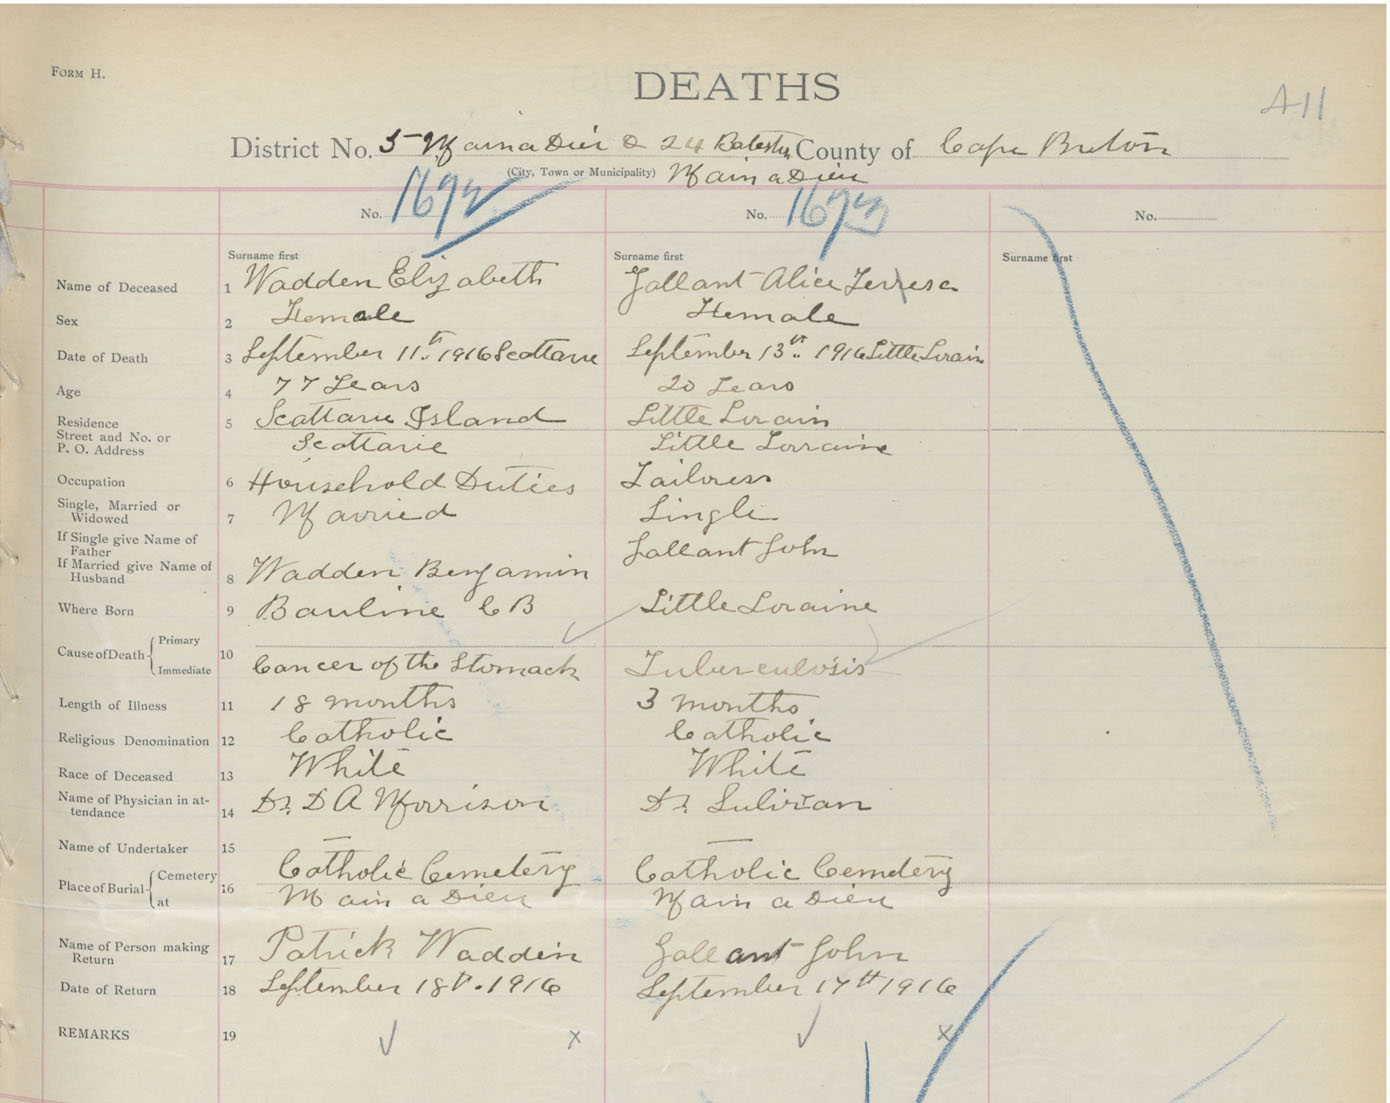 FORM H.
DEATHS
A11
District No. 5 Main a Dieu & 24 County of Cape Breton
(City, Town or Municipality) Main a Dieu
No. 1692 No. 1693 No.
Surname first Surname first Surname first
Name of Deceased 1 Wadden Elizabeth Gallant Alice Terresa
Sex 2 Female Female
Date of Death 3 September 11th 1916 Scattarie September 13th 1916 Little Lorain
Age 4 77 Years 20 Years
Residence 5 Scattarie Island Little Lorain
Street and No. or
P. O. Address Scattarie Little Lorraine
Occupation 6 Household Duties Tailoress
Single, Married or
Widowed 7 Married Single
If Single give Name of
Father Gallant John
If Married give Name of
Husband 8 Wadden Benjamin
Where Born 9 Bauline C B Little Loraine
Cause of Death Primary
10
Immediate Cancer of the Stomack Tuberculosis
Length of Illness 11 18 months 3 months
Religious Denomination 12 Catholic Catholic
Race of Deceased 13 White White
Name of Physician in at-
tendance 14 Dr. D A Morrison Dr. Sulivan
Name of Undertaker 15 — —
Place of Burial Cemetery Catholic Cemetery Catholic Cemetery
16
at Main a Dieu Main a Dieu
Name of Person making
Return 17 Patrick Wadden Gallant John
Date of Return 18 September 18th 1916 September 17th 1916
REMARKS 19 ✓ x ✓ x